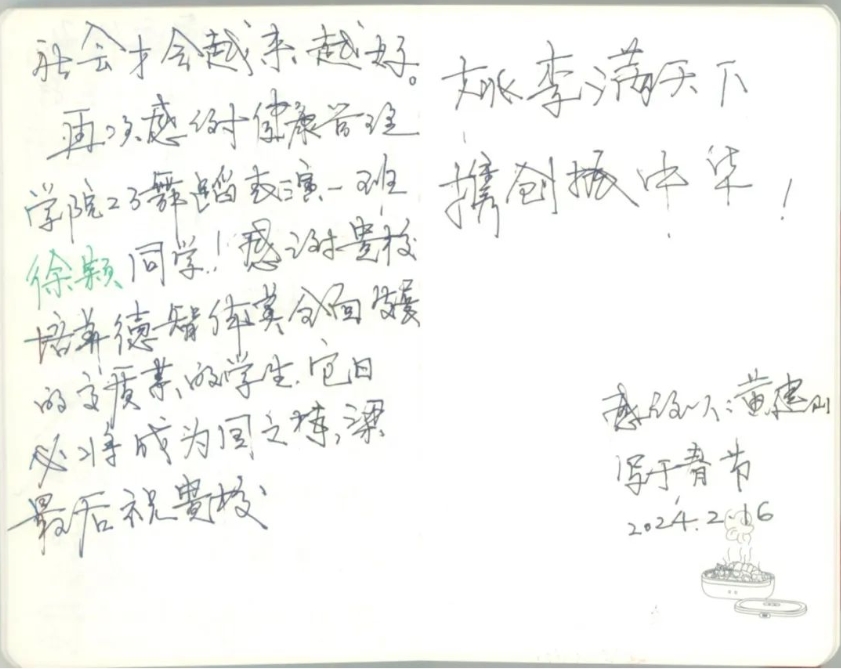 社会才会越来越好。
再次感谢健康管理
学院23舞蹈表演一班
徐颖同学!感谢贵校
培养德智体美全面发展
的高质素的学生.它日
必将成为国之栋梁
最后祝贵校
桃李满天下
携创振中华!
感谢人:黄建
写于春节
2024.2.16